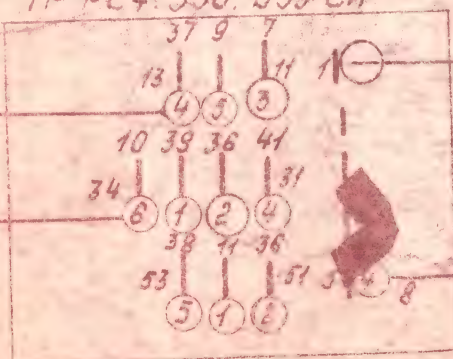 37 9 7
13 11 1
4 5 3
10 39 36 41
34 31
6 1 2 4
38 11 36
53 51
5 1 2 8